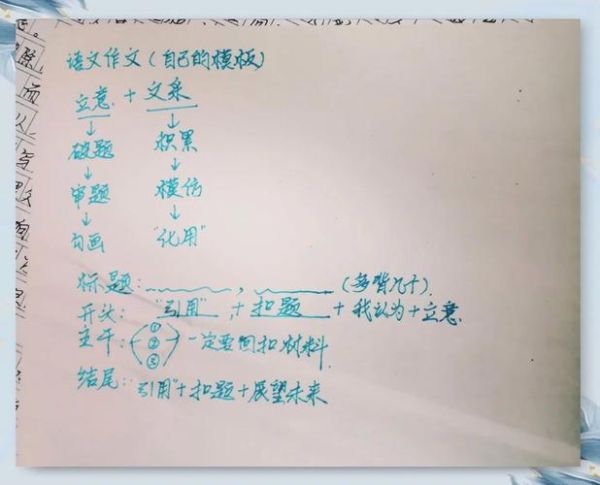 语文作文(自己的模板)
立意 + 文采
↓ ↓
破题 积累
↓ ↓
审题 模仿
↓ ↓
勾画 "化用"
标题:________,________(多背几个)
开头:"引用" + 扣题 + 我认为+立意.
主干:(① ② ③) 一定要回扣材料.
结尾:"引用"+扣题+展望未来
除
须
从